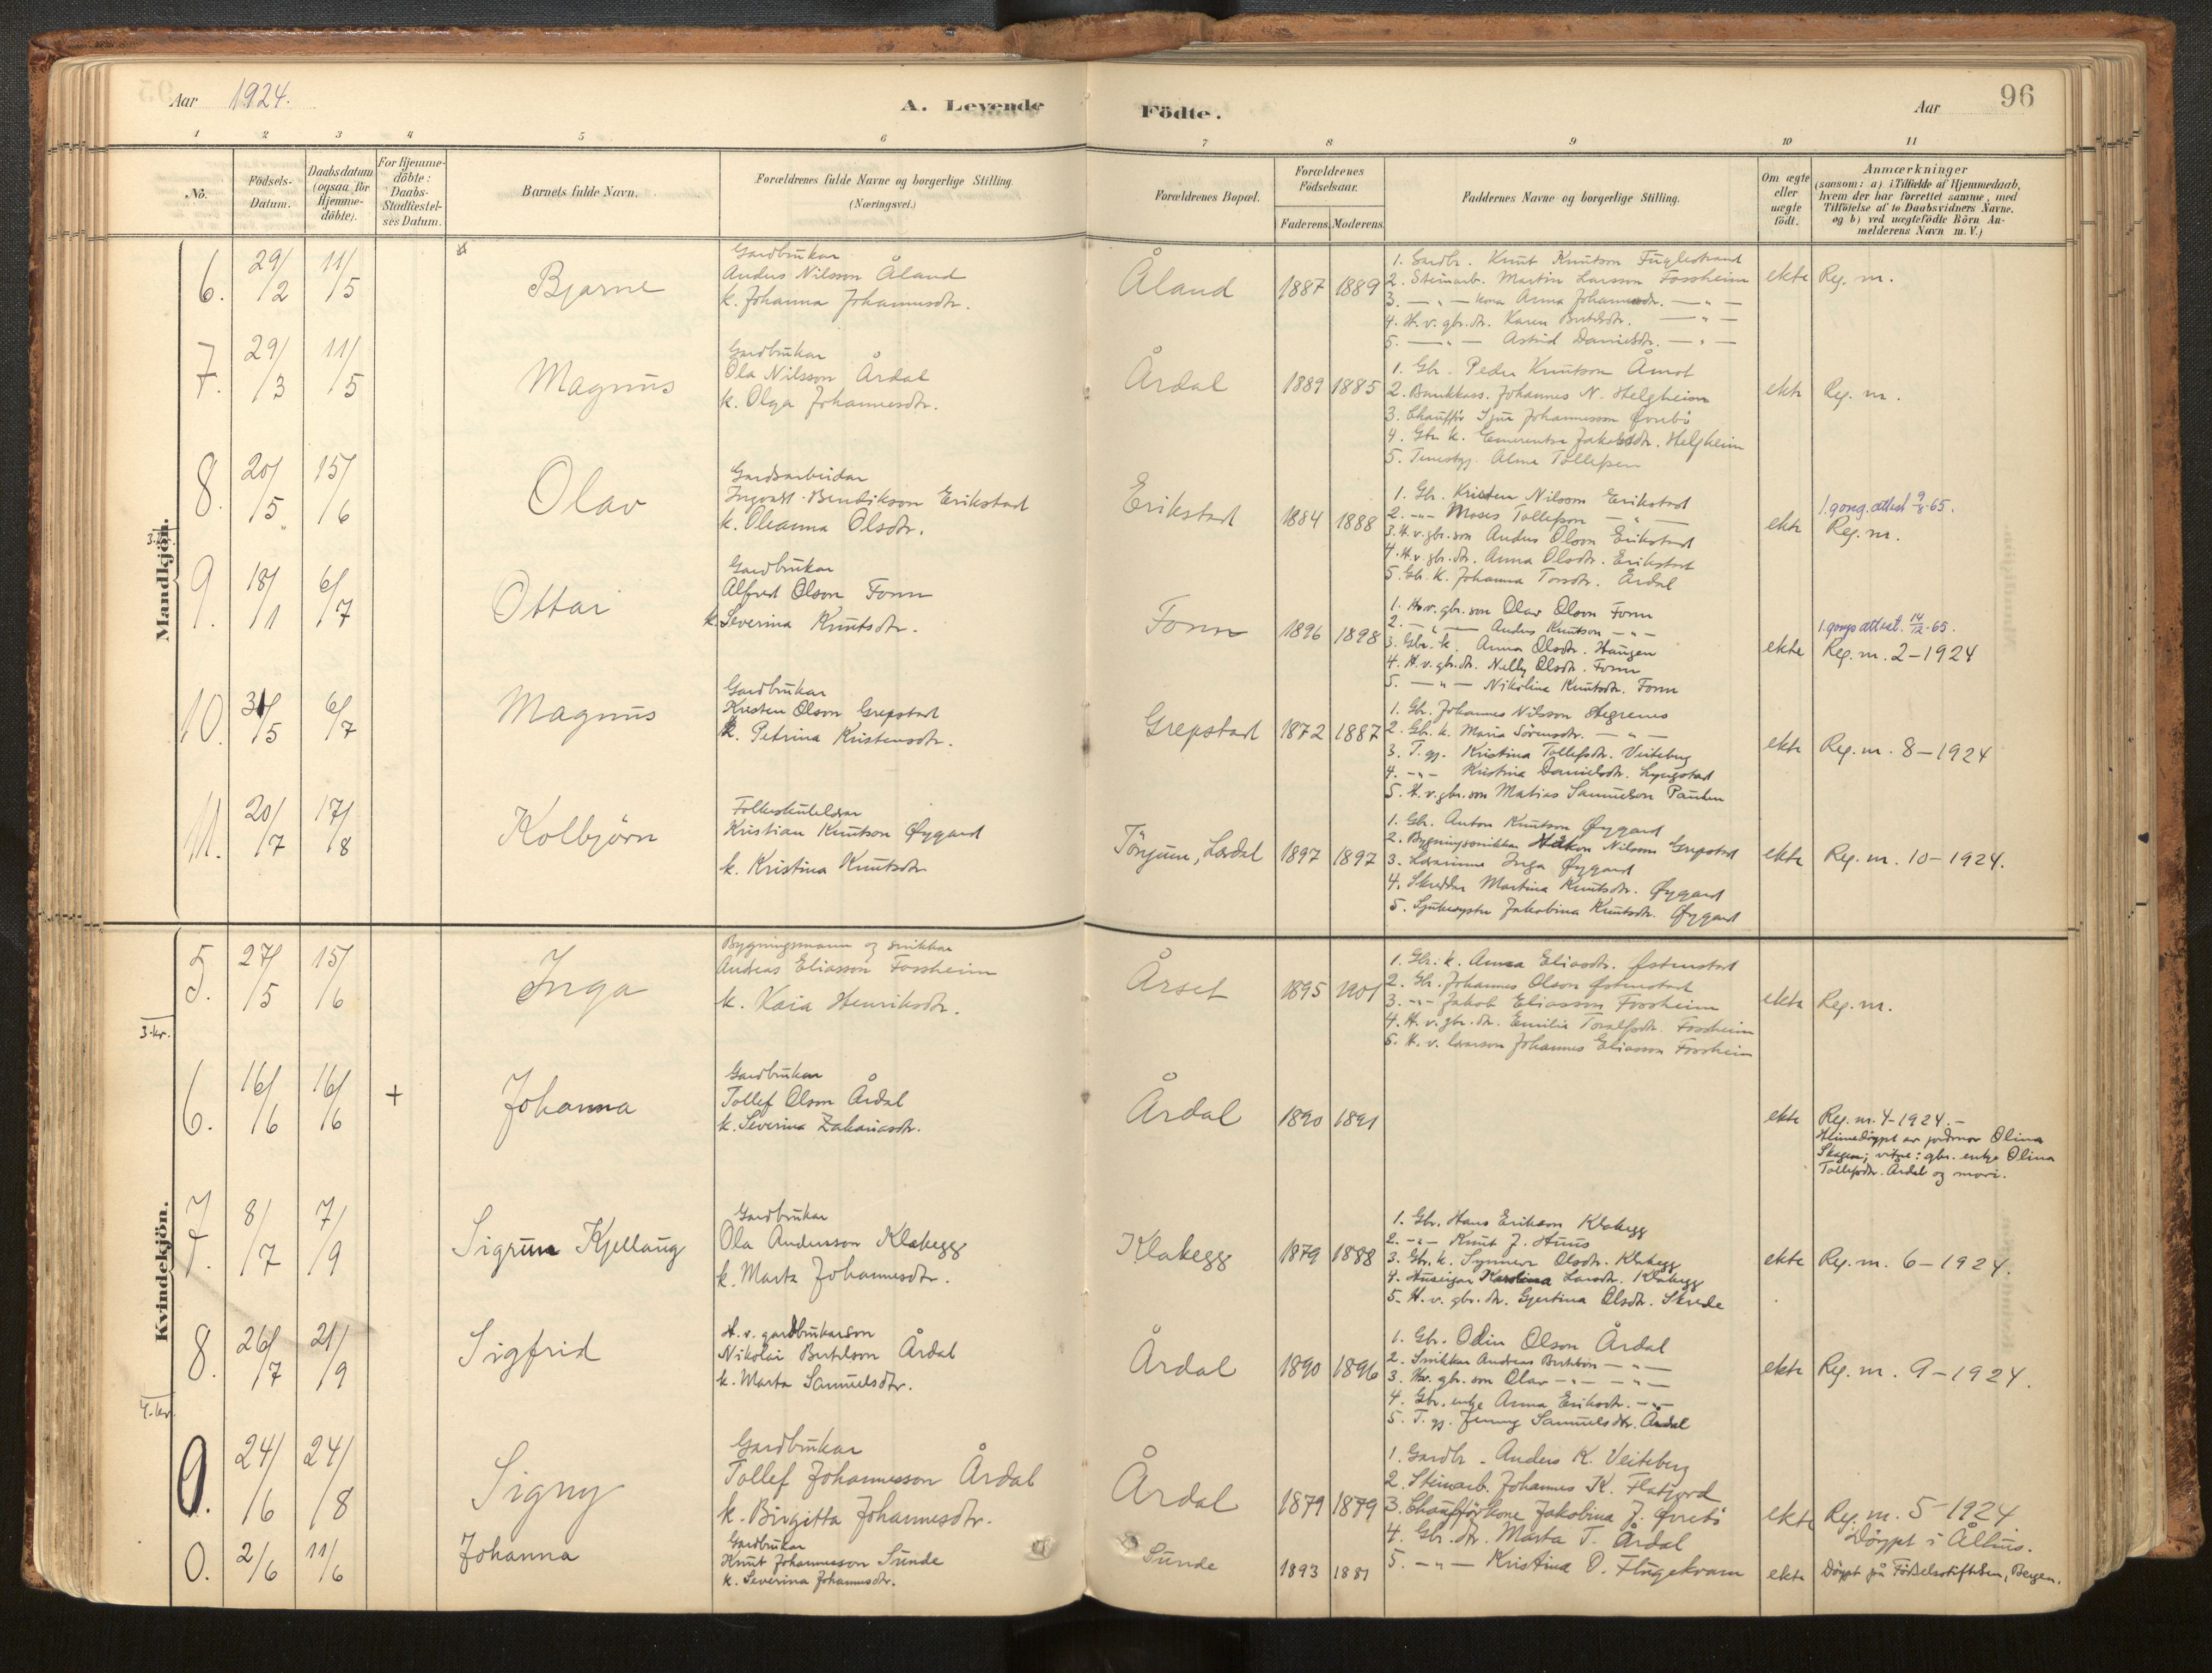 Aar 1924.
A. Levende
Födte.
Aar
96
1 2 3 4 5 6 7 8 9 10 11
No.
Födsels-Datum.
Daabsdatum (ogsaa for Hjemme-döbte).
For Hjemme-döbte: Daabs-Stadfæstel-ses Datum.
Barnets fulde Navn.
Forældrenes fulde Navne og borgerlige Stilling. (Næringsvei.)
Forældrenes Bopæl.
Forældrenes Födselsaar.
Faderens. Moderens.
Faddernes Navne og borgerlige Stilling.
Om ægte eller uægte födt.
Anmærkninger
(saasom: a) i Tilfælde af Hjemmedaab, hvem der har forrettet samme, med Tilföielse af to Daabsvidners Navne, og b) ved uægtefödte Börn An-melderens Navn m. V.)
Mandkjön.
6. 29/2 11/5 Bjarne
Gardbrukar
Anders Nilsson Åland
k. Johanna Johannesdtr.
Åland 1887 1889
1. Gardbr. Knut Knutson Fuglestrand
2. Steinarb. Martin Larsson Fossheim
3. — „ — kona Anna Johannesdr. — „ —
4. H. v. gbr. dr. Karen Bertelsdtr. — „ —
5. — „ — Astrid Danielsdtr. — „ —
ekte Reg. m.
7. 29/3 11/5 Magnus
Gardbrukar
Ola Nilsson Årdal
k. Olga Johannesdtr.
Årdal 1889 1885
1. Gbr. Peder Knutson Åmot
2. Bankkass. Johannes N. Helgheim
3. Chauffør Sjur Johannesson Øvrebö
4. Gbr. k. Emerentse Jakobsdtr. Helgheim
5. Tenestgj. Alma Tollefsen
ekte Reg. m.
8. 20/5 15/6 Olav
Gardsarbeidar
Ingvald Bendikson Erikstad
k. Oleanna Olsdtr.
Erikstad 1884 1888
1. Gbr. Kristen Nilsson Erikstad
2. -„- Moses Tollefson — „ —
3. H. v. gbr. son Anders Olson Erikstad
4. H. v. gbr. dr. Anna Olsdtr. Erikstad
5. Gbr. k. Johanna Torsdtr. Årdal
ekte
1. gong. attest 9/8-65.
Reg. m.
3.kr.
9. 18/1 6/7 Ottar
Gardbrukar
Alfred Olson Fonn
k. Severina Knutsdtr.
Fonn 1896 1898
1. H. v. gbr. son Olav Olson Fonn
2. — „ — Anders Knutson — „ —
3. Gbr. k. Anna Olsdtr. Haugen
4. H. v. gbr. dr. Nelly Olsdtr. Fonn
5. — „ — Nikolina Knutsdtr. Fonn
ekte
1. gongs attest. 14/12-65.
Reg. m. 2-1924
10. 31/5 6/7 Magnus
Gardbrukar
Kristen Olson Grepstad
k. Petrina Kristensdtr.
Grepstad 1872 1887
1. Gbr. Johannes Nilsson Hegrenes
2. Gbr. k. Maria Sörensdtr. — „ —
3. T. gj. Kristina Tollefsdtr. Veiteberg
4. -„- Kristina Danielsdtr. Lyngstad
5. H. v. gbr. son Matias Samuelson Paulen
ekte Reg. m. 8-1924
11. 20/7 17/8 Kolbjörn
Folkeskulelærar
Kristian Knutson Øygard
k. Kristina Knutsdtr
Tönjum, Lærdal 1897 1897
1. Gbr. Anton Knutson Øygard
2. Bygningssnikkar Håkon Nilsson Grepstad
3. Lærarinne Inga Øygard
4. Skreddar Martina Knutsdtr. Øygard
5. Sjukesyster Jakobina Knutsdtr. Øygard
ekte Reg. m. 10-1924.
Kvindekjön.
5. 27/5 15/6 Inga
Bygningsmann og snikkar
Andreas Eliasson Fossheim
k. Kaia Henriksdtr.
Årset 1895 1901
1. Gbr. k. Anna Eliasdtr. Østenstad
2. Gbr. Johannes Olson Østenstad
3. -„- Jakob Eliasson Fossheim
4. H. v. gbr. dtr. Emilie Toralfsdtr. Fossheim
5. H. v. lærarson Johannes Eliasson Fossheim
ekte Reg. m.
3.kr.
6. 16/6 16/6 + Johanna
Gardbrukar
Tollef Olson Årdal
k. Severina Zakariasdtr.
Årdal 1890 1891
ekte
Reg. m. 4-1924.-
Heimedöypt av jordmor Olina
Skagen; vitne: gbr. enkje Olina
Tollefsdtr. Årdal og mori.
7. 8/7 7/9 Sigrun Kjellaug
Gardbrukar
Ola Andersson Klakegg
k. Marta Johannesdtr.
Klakegg 1879 1888
1. Gbr. Hans Erikson Klakegg
2. -„- Knut J. Huus
3. Gbr. k. Synneva Olsdtr. Klakegg
4. Huseigar Karolina Larsdtr. Klakegg
5. H. v. gbr. dtr. Gjertina Olsdtr. Skrede
ekte Reg. m. 6-1924.
8. 26/7 21/9 Sigfrid
H. v. gardbrukarson
Nikolai Bertelson Årdal
k. Marta Samuelsdtr.
Årdal 1890 1896
1. Gbr. Odin Olson Årdal
2. Snikkar Andreas Bertelson — „ —
3. H.v. gbr. son Olav — „ — — „ —
4. Gbr. enkje Anna Eriksdtr. — „ —
5. T. gj. Jenny Samuelsdtr. Årdal
ekte Reg. m. 9-1924.
4.kr.
0. 24/6 24/8 Signy
Gardbrukar
Tollef Johannesson Årdal
k. Birgitta Johannesdtr.
Årdal 1879 1879
1. Gardbr. Anders K. Veiteberg
2. Steinarb. Johannes K. Flatjord
3. Chaufförkone Jakobina J. Øvrebö
4. Gbr. dtr. Marta T. Årdal
5. — „ — Kristina O. Flugekvam
ekte
Reg. m. 5-1924
Döypt i Ålhus.
0. 2/6 11/6 Johanna
Gardbrukar
Knut Johannesson Sunde
k. Severina Johannesdtr.
Sunde 1893 1881
ekte Döypt på Födselsstiftelsen, Bergen.